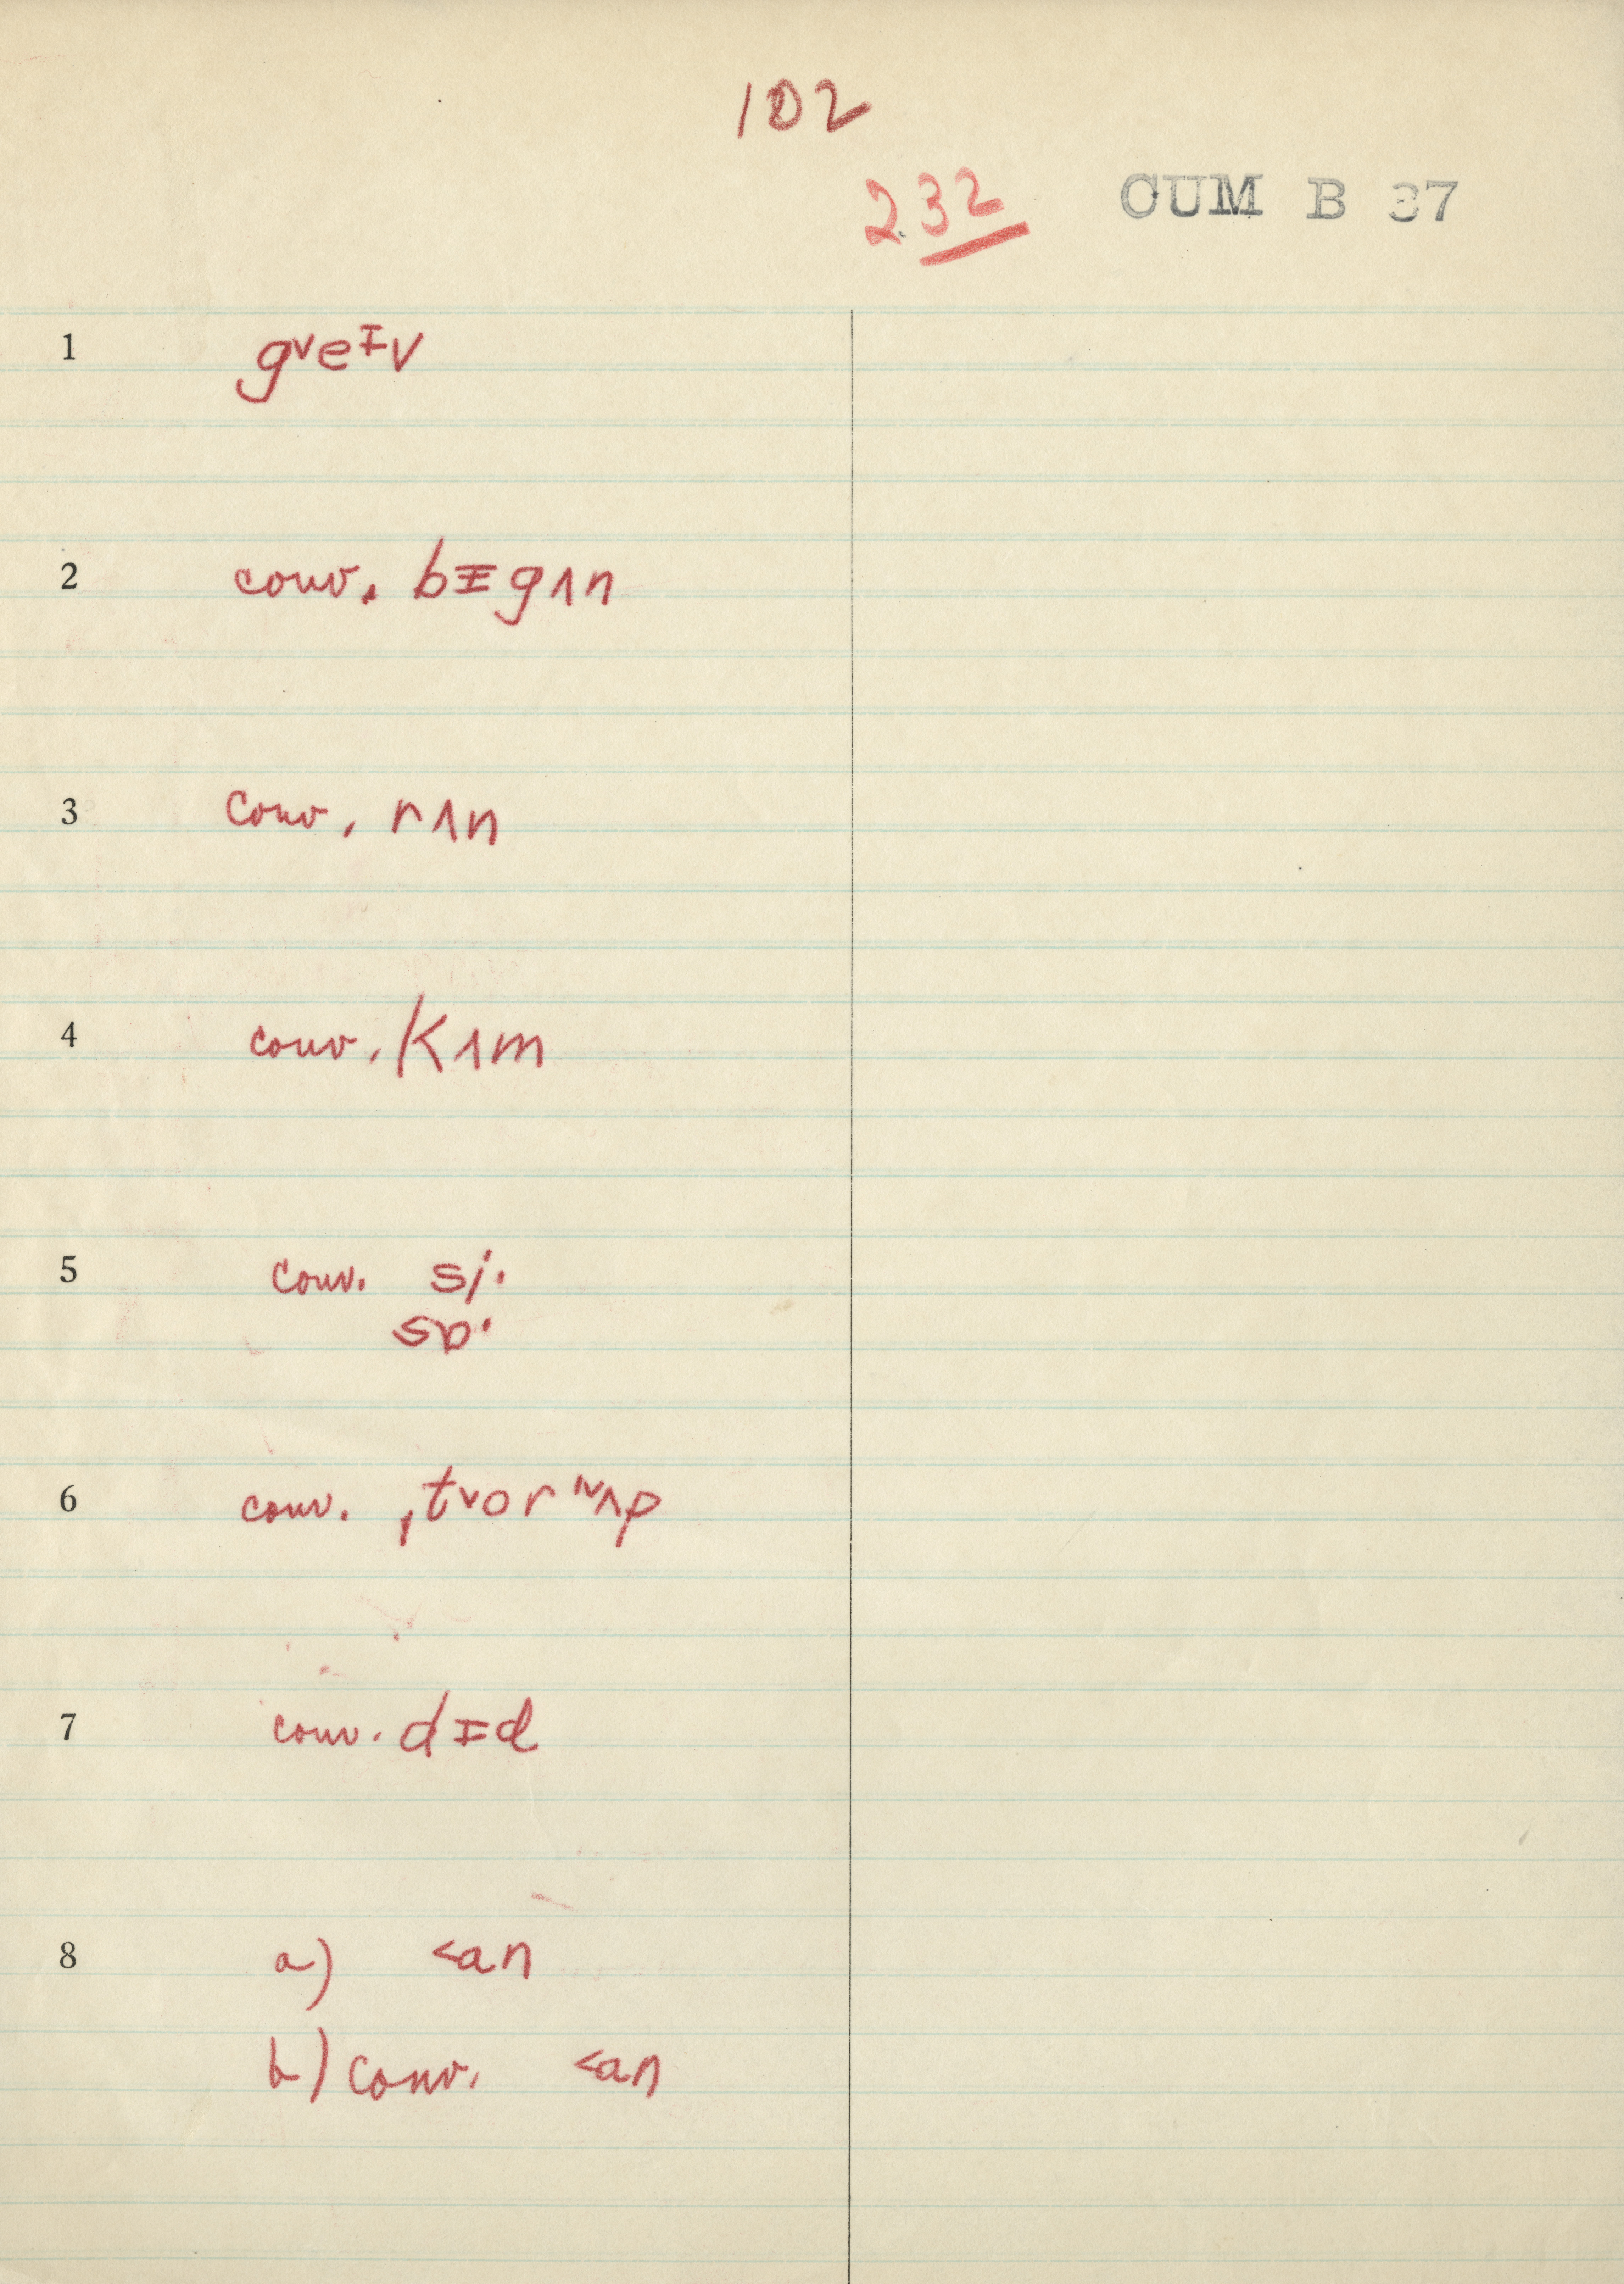 102
232 CUM B 37
1 gᵛeᶧv
2 conv. bɪgʌn
3 conv. rʌn
4 conv. kʌm
5 conv. si·
sɒ·
6 conv. ˌtᵛor ʷʌp
7 conv. dɪd
8 a) <an
b) conv. <an